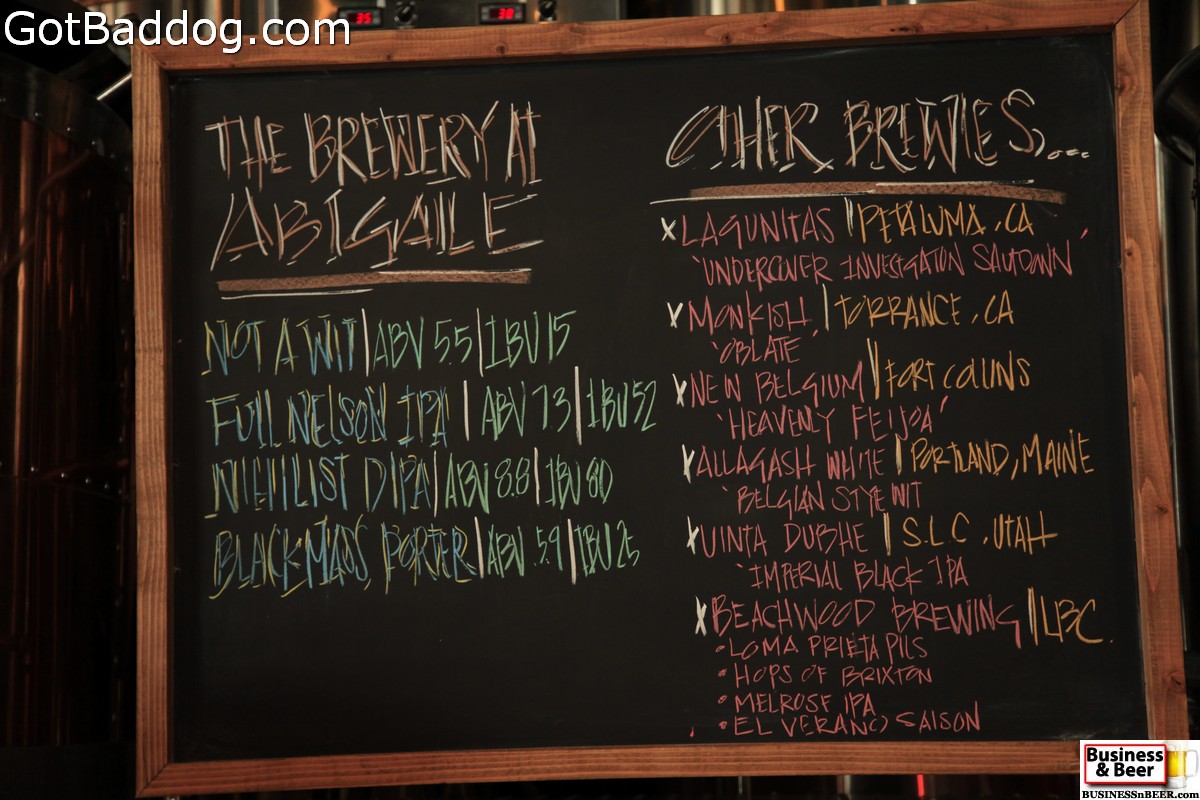 GotBaddog.com
35
30
THE BREWERY AT
ABIGAILE
NOT A WIT | ABV 5.5 | IBU 15
FULL NELSON IPA | ABV 7.3 | IBU 52
NIHILIST DIPA | ABV 8.8 | IBU 80
BLACK MAOS PORTER | ABV 5.9 | IBU 25
OTHER BREWIES...
X LAGUNITAS | PETALUMA, CA
'UNDERCOVER INVESTIGATON SHUTDOWN'
X MONKISH, | TORRANCE, CA
'OBLATE
X NEW BELGIUM | FORT COLLINS
'HEAVENLY FEIJOA'
X ALLAGASH WHITE | PORTLAND, MAINE
'BELGIAN STYE WIT
X UINTA DUBHE | S.L.C, UTAH
'IMPERIAL BLACK IPA
X BEACHWOOD BREWING | LBC.
• LOMA PRIETA PILS
• HOPS OF BRIXTON
• MELROSE IPA
• EL VERANO SAISON
Business
& Beer
BUSINESSnBEER.com